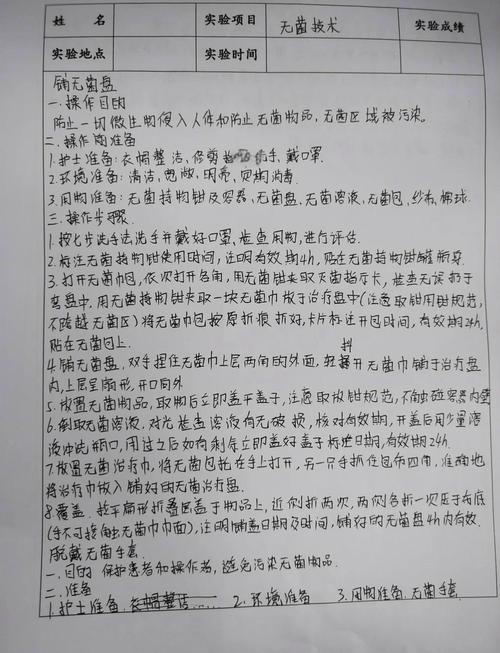 姓 名 实验项目 无菌技术 实验成绩
实验地点 实验时间
铺无菌盘
一.操作目的
防止一切微生物侵入人体和防止无菌物品,无菌区域被污染。
二.操作前准备
1.护士准备:衣帽整洁,修剪 洗手,戴口罩。
2.环境准备:清洁,宽敞,明亮,定期消毒.
3.用物准备:无菌持物钳及容器,无菌盘,无菌溶液,无菌包,纱布,棉球.
三.操作步骤.
1.按七步洗手法洗手并戴好口罩,检查用物,进行评估.
2.标注无菌持物钳使用时间,注明有效期4h,贴在无菌持物钳罐
3.打开无菌巾包,依次打开各角,用无菌钳夹取灭菌指示卡,检查无误扔于
弯盘中.用无菌持物钳夹取一块无菌巾放于治疗盘中(注意取钳用钳规范,
不跨越无菌区)将无菌巾包按原折痕折好,卡片标注开包时间,有效期24h,
贴在无菌包上.
4.铺无菌盘,双手捏住无菌巾上层两角的外面,轻抖开无菌巾铺于治疗盘
内,上层呈扇形,开口向外
5.放置无菌物品,取物后立即盖平盖子,注意取放钳规范,不触碰容器内壁
6.倒取无菌溶液,对光检查溶液有无破损,核对有效期,开盖后用少量溶
液冲洗瓶口,用过之后如有剩余立即盖好盖子标注日期,有效期24h.
7.放置无菌治疗巾,将无菌包托在手上打开,另一只手抓住包布四角,准确地
将治疗巾放入铺好的无菌治疗盘.
8.覆盖.拉平扇形折叠层盖于物品上,近侧折两次,两侧各折一次压于布底
(手不可接触无菌巾巾面),注明铺盘日期及时间,铺好的无菌盘4h内有效.
脱戴无菌手套.
一.目的 保护患者和操作者,避免污染无菌物品.
二.准备
1.护士准备.衣帽整洁...... 2.环境准备 3.用物准备.无菌手套.